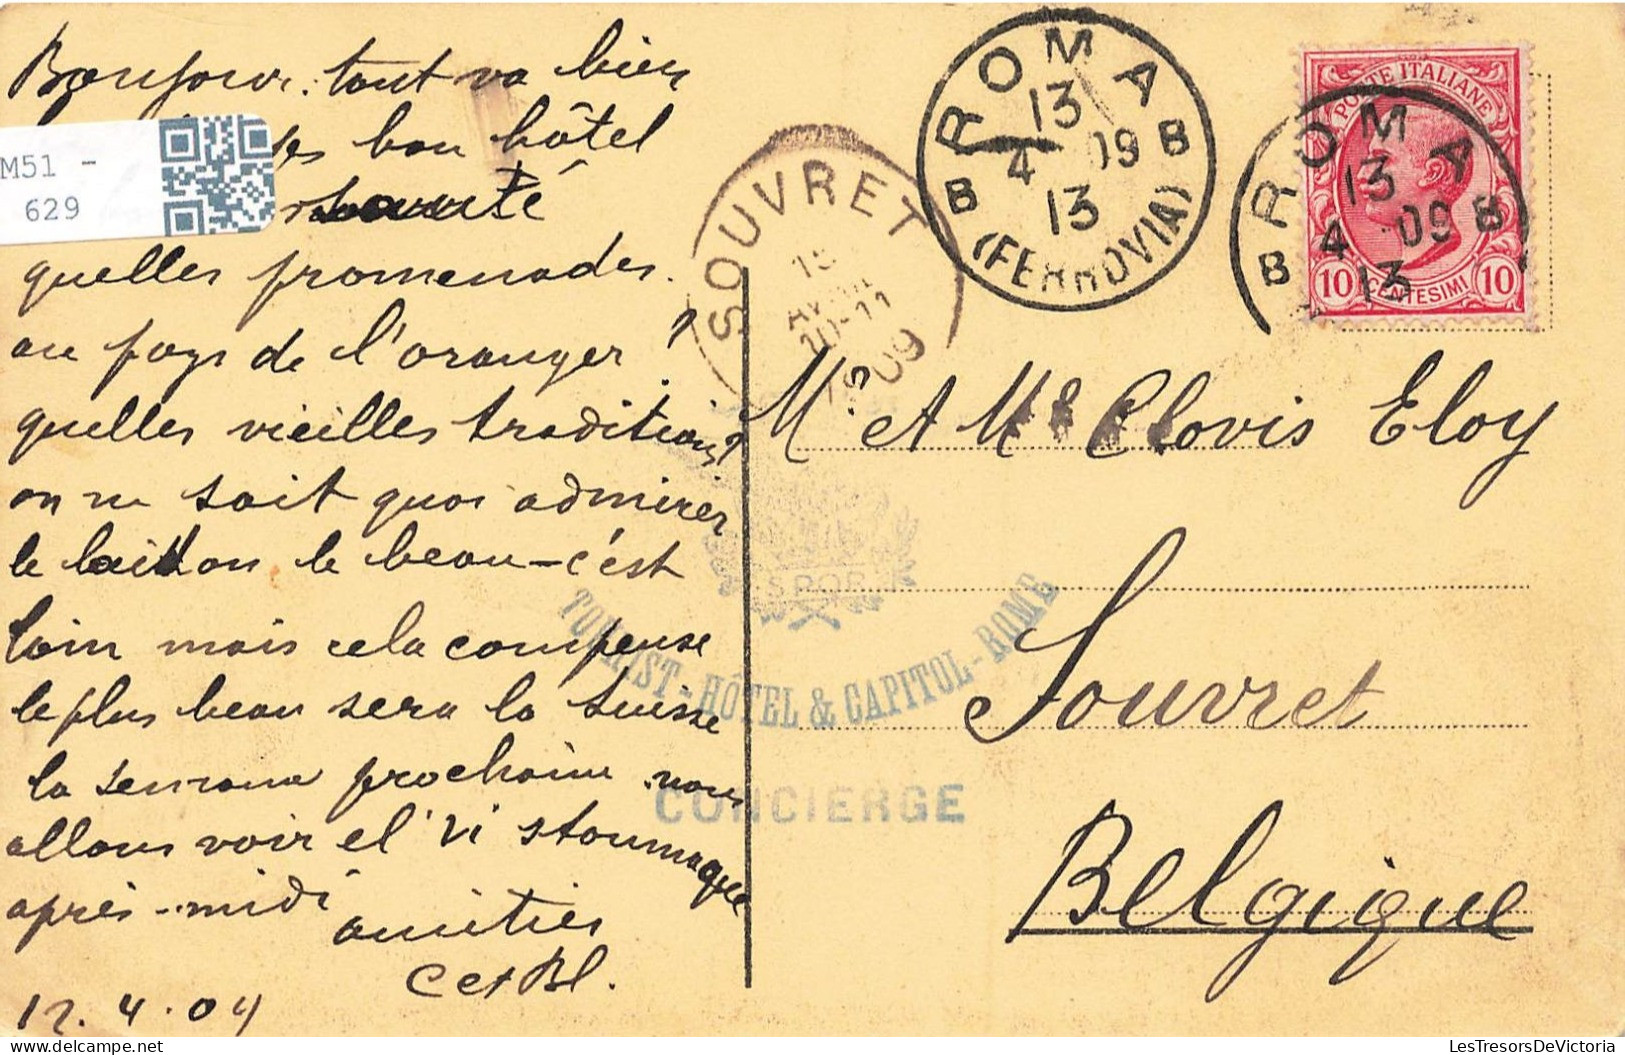 Bonjour. tout va bien
bon hôtel
M51 -
629
santé
quelles promenades.
au pays de l'oranger ?
quelles vieilles traditions ?
on ne sait quoi admirer
le laid ou le beau - c'est
loin mais cela compense
le plus beau sera la Suisse
la semaine prochaine nous
allons voir el'
après-midi
amitiés
C et Bl.
12.4.09
SOUVRET
15
AVRIL
10-11
1909
ROMA
13
4 09
13
B B
(FERROVIA)
ROMA
13
4 09
13
B B
POSTE ITALIANE
10 CENTESIMI 10
Mr et Me Clovis Eloy
Souvret
Belgique
SPQR
TOURIST-HÔTEL & CAPITOL-ROME
CONCIERGE
LesTresorsDeVictoria